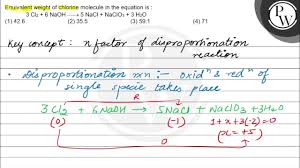 Equivalent weight of chlorine molecule in the equation is :
3 Cl2 + 6 NaOH ⟶ 5 NaCl + NaClO3 + 3 H2O
(1) 42.6 (2) 35.5 (3) 59.1 (4) 71
PW
Key concept : n factor of disproportionation
reaction
• Disproportionation rxn :- oxidn & redn of
single specie takes place
R
3Cl2 + 6NaOH → 5NaCl + NaClO3 + 3H2O
(0) (-1) 1+x+3(-2)=0
(x=+5)
O